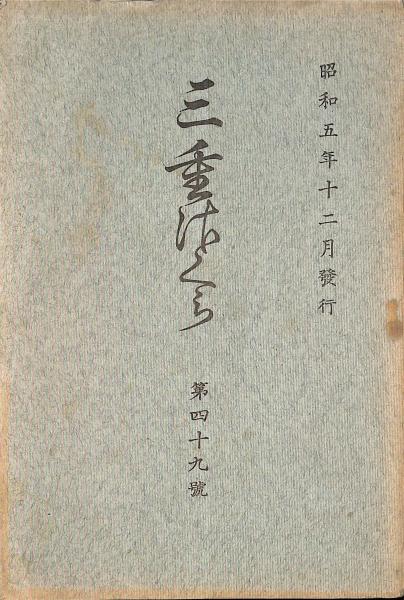 昭和五年十二月發行
三重佐くら
第四十九號